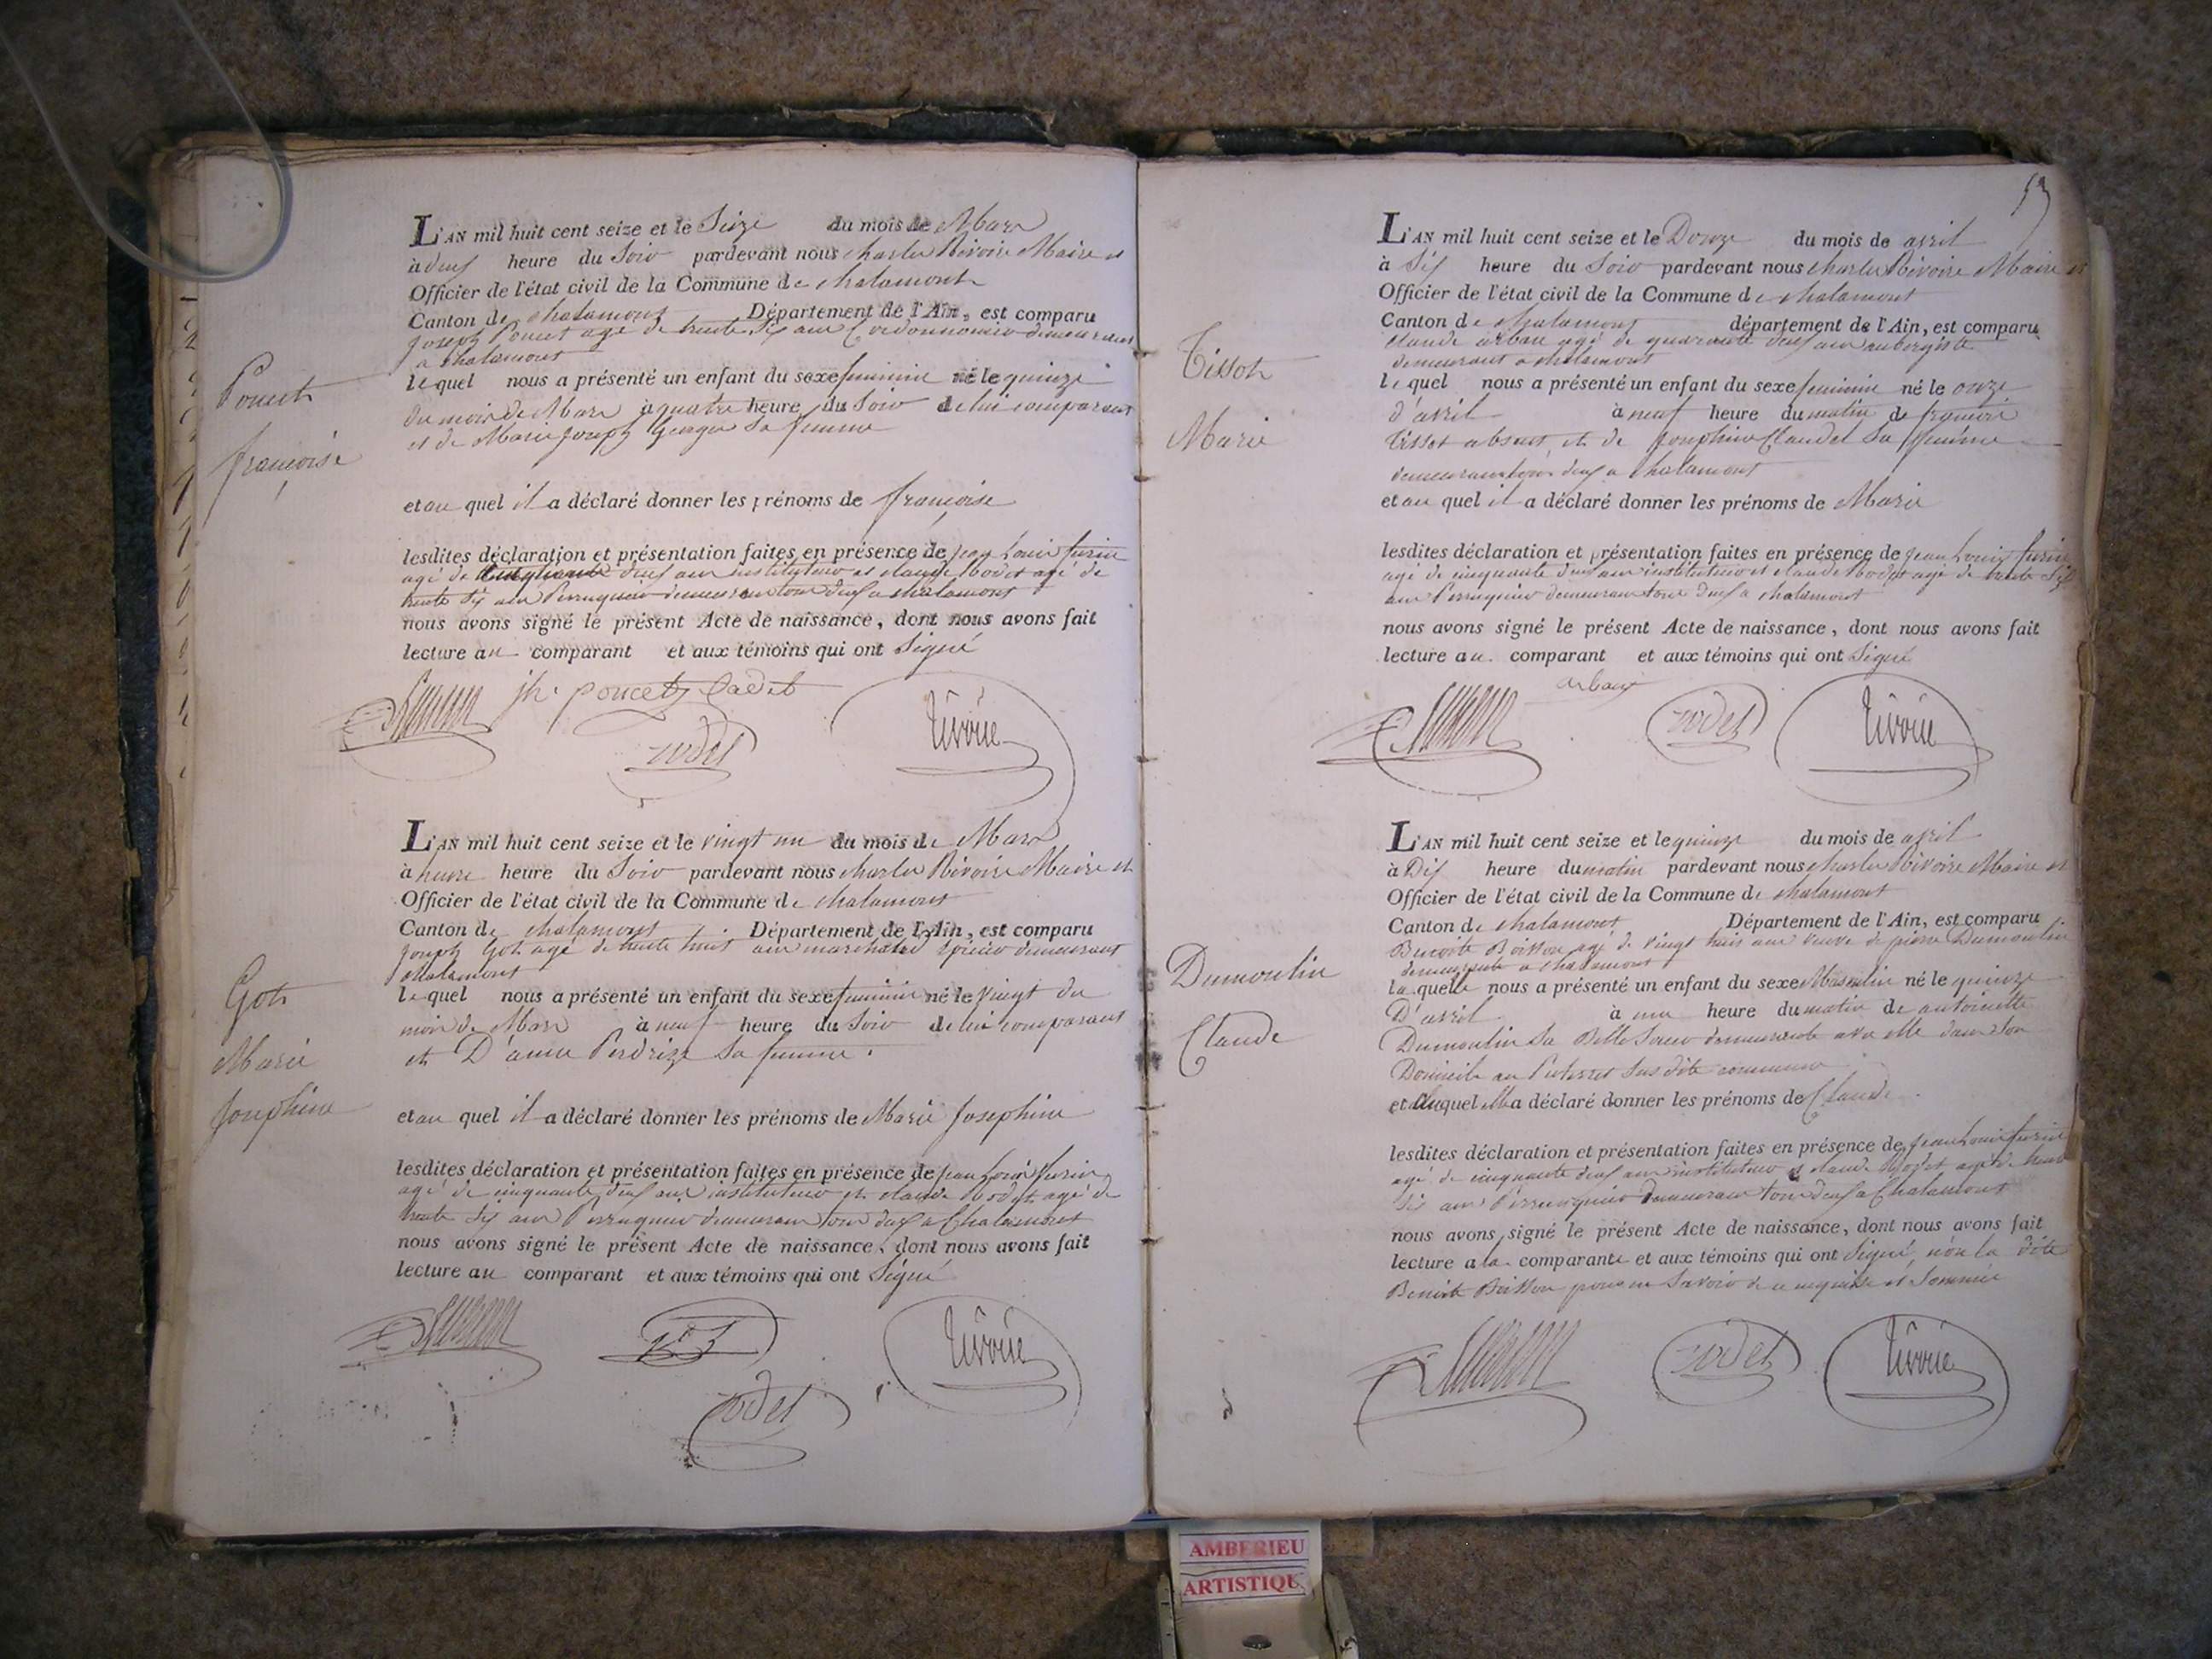 L'AN mil huit cent seize et le Seize du mois de Mars
à deux heure du Soir pardevant nous charles Rivoire Maire et
Officier de l'état civil de la Commune de chalamont
Canton de chalamont Département de l'Ain, est comparu
joseph Poncet agé de trente Six ans Cordonnier demeurant
a chalamont
Poncet
lequel nous a présenté un enfant du sexe feminin né le quinze
du mois de Mars à quatre heure du Soir de lui comparant
et de Marie joseph Georges Sa femme
françoise
et au quel il a déclaré donner les prénoms de françoise
lesdites déclaration et présentation faites en présence de jean Louis
agé de deux ans instituteur et claude Rodet agé de
trente Six ans Perruquier demeurant tous deux a chalamont
nous avons signé le présent Acte de naissance, dont nous avons fait
lecture au comparant et aux témoins qui ont Signé
jh. poncet Cadet
rodet
rivoire
L'AN mil huit cent seize et le vingt un du mois de Mars
à heure du Soir pardevant nous charles Rivoire Maire et
Officier de l'état civil de la Commune de chalamont
Canton de chalamont Département de l'Ain, est comparu
joseph Got agé de trente huit ans marchand Epicier demeurant
chalamont
Got
lequel nous a présenté un enfant du sexe feminin né le vingt du
mois de Mars à neuf heure du Soir de lui comparant
et D'anne Perdrize Sa femme.
Marie
josephine
et au quel il a déclaré donner les prénoms de Marie Josephine
lesdites déclaration et présentation faites en présence de jean Louis
agé de cinquante deux ans instituteur et claude Rodet agé de
trente Six ans Perruquier demeurant tous deux a Chalamont
nous avons signé le présent Acte de naissance, dont nous avons fait
lecture au comparant et aux témoins qui ont Signé
rodet
rivoire
53
L'AN mil huit cent seize et le Douze du mois de avril
à Six heure du Soir pardevant nous charles Rivoire Maire et
Officier de l'état civil de la Commune de chalamont
Canton de chalamont département de l'Ain, est comparu
claude arban agé de quarante deux ans aubergiste
demeurant a chalamont
Tissot
lequel nous a présenté un enfant du sexe feminin né le onze
d'avril à neuf heure du matin de françois
Marie
Tissot absent, et de josephine Claudel Sa femme
demeurant tous deux a Chalamont
et au quel il a déclaré donner les prénoms de Marie
lesdites déclaration et présentation faites en présence de jean Louis
agé de cinquante deux ans instituteur et claude Rodet agé de trente Six
ans Perruquier demeurant tous deux a chalamont
nous avons signé le présent Acte de naissance, dont nous avons fait
lecture au comparant et aux témoins qui ont Signé
rodet
rivoire
L'AN mil huit cent seize et le quinze du mois de avril
à Dix heure du matin pardevant nous charles Rivoire Maire et
Officier de l'état civil de la Commune de chalamont
Canton de chalamont Département de l'Ain, est comparu
Benoite Boisson agé de vingt trois ans veuve de pierre Dumoulin
demeurante a chalamont
Dumoulin
laquelle nous a présenté un enfant du sexe Masculin né le quinze
D'avril à une heure du matin de antoinette
Claude
Dumoulin Sa Belle Soeur demeurante avec elle dans Son
Domicile au Susdite commune
et Auquel elle a déclaré donner les prénoms de Claude.
lesdites déclaration et présentation faites en présence de jean Louis
agé de cinquante deux ans instituteur et claude Rodet agé de trente
Six ans Perruquier demeurant tous deux a Chalamont
nous avons signé le présent Acte de naissance, dont nous avons fait
lecture a la comparante et aux témoins qui ont Signé, non la dite
Benoite Boisson pour ne Savoir de ce enquise et Sommée
rodet
rivoire
AMBERIEU
ARTISTIQUE